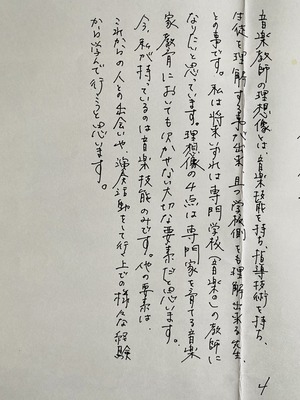 音楽教師の理想像とは、音楽技能を持ち、指導技術を持ち、
生徒を理解する事が出来、且つ学校側も理解出来る先生、
との事です。私は将来いずれは専門学校(音楽の)の教師に
なりたいと思っています。理想像の4点は専門家を育てる音楽
家教育においても欠かせない大切な要素だと思います。
今、私が持っているのは音楽技能のみです。他の要素は、
これからの人との出会いや、演奏活動をして行く上での様々な経験
から学んで行こうと思います。
4